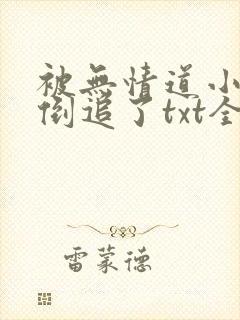 被無情道小
倒追了txt全
雷蒙德